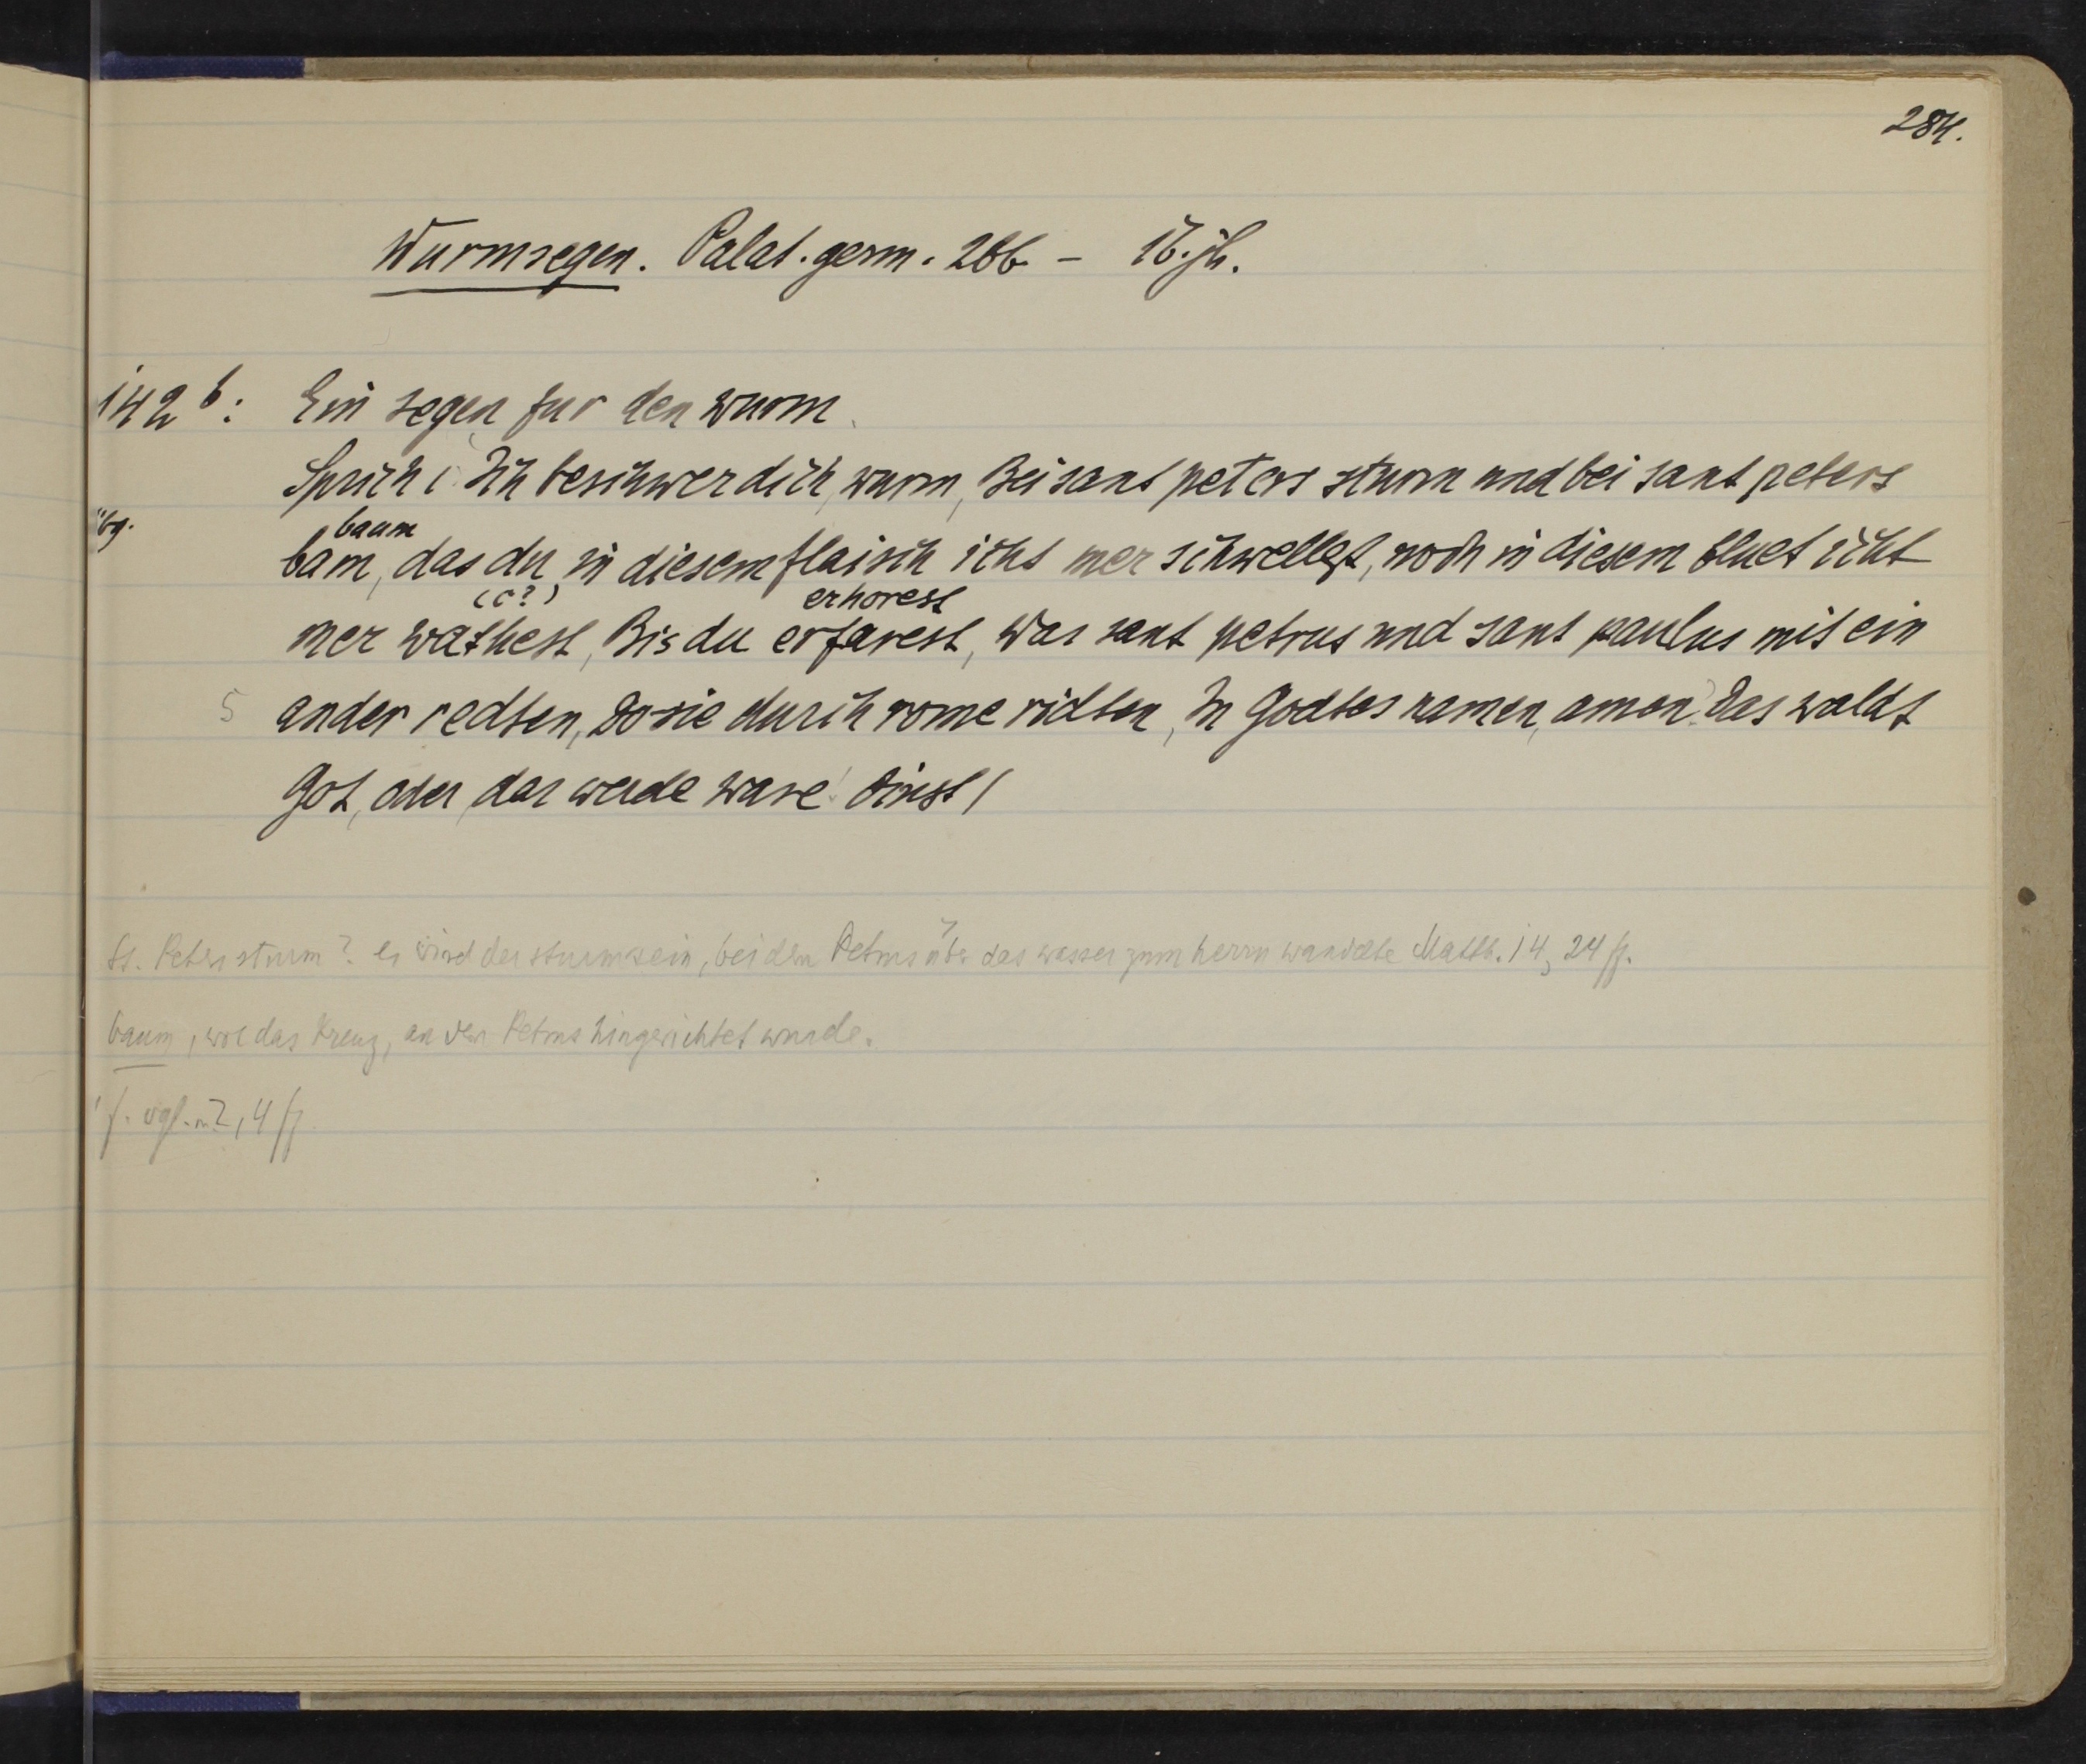 284.
Wurmsegen. Palat. germ. 266 - 16. jh.
142 b: Ein segen fur den wurm
Sprich: Ich beschwer dich, wurm, Bei sant peters sturm und bei sant peters
baum
bam, das du in diesem flaisch icht mer schwellest, noch in diesem bluet icht
(c?) erhorest
mer wathest, Bis du erfarest, Was sant petrus und sant paulus mit ein
5 ander redten, Do sie durch rome ridten, In Godtes namen, amen. Das waldt
Got, oder das werde ware! Dinst/
St. Peters sturm? es wird der sturm sein, bei dem Petrus über das wasser zum herrn wandelte Matth. 14, 24 ff.
baum, wol das Kreuz, an dem Petrus hingerichtet wurde.
f. vgl. 2, 4 ff